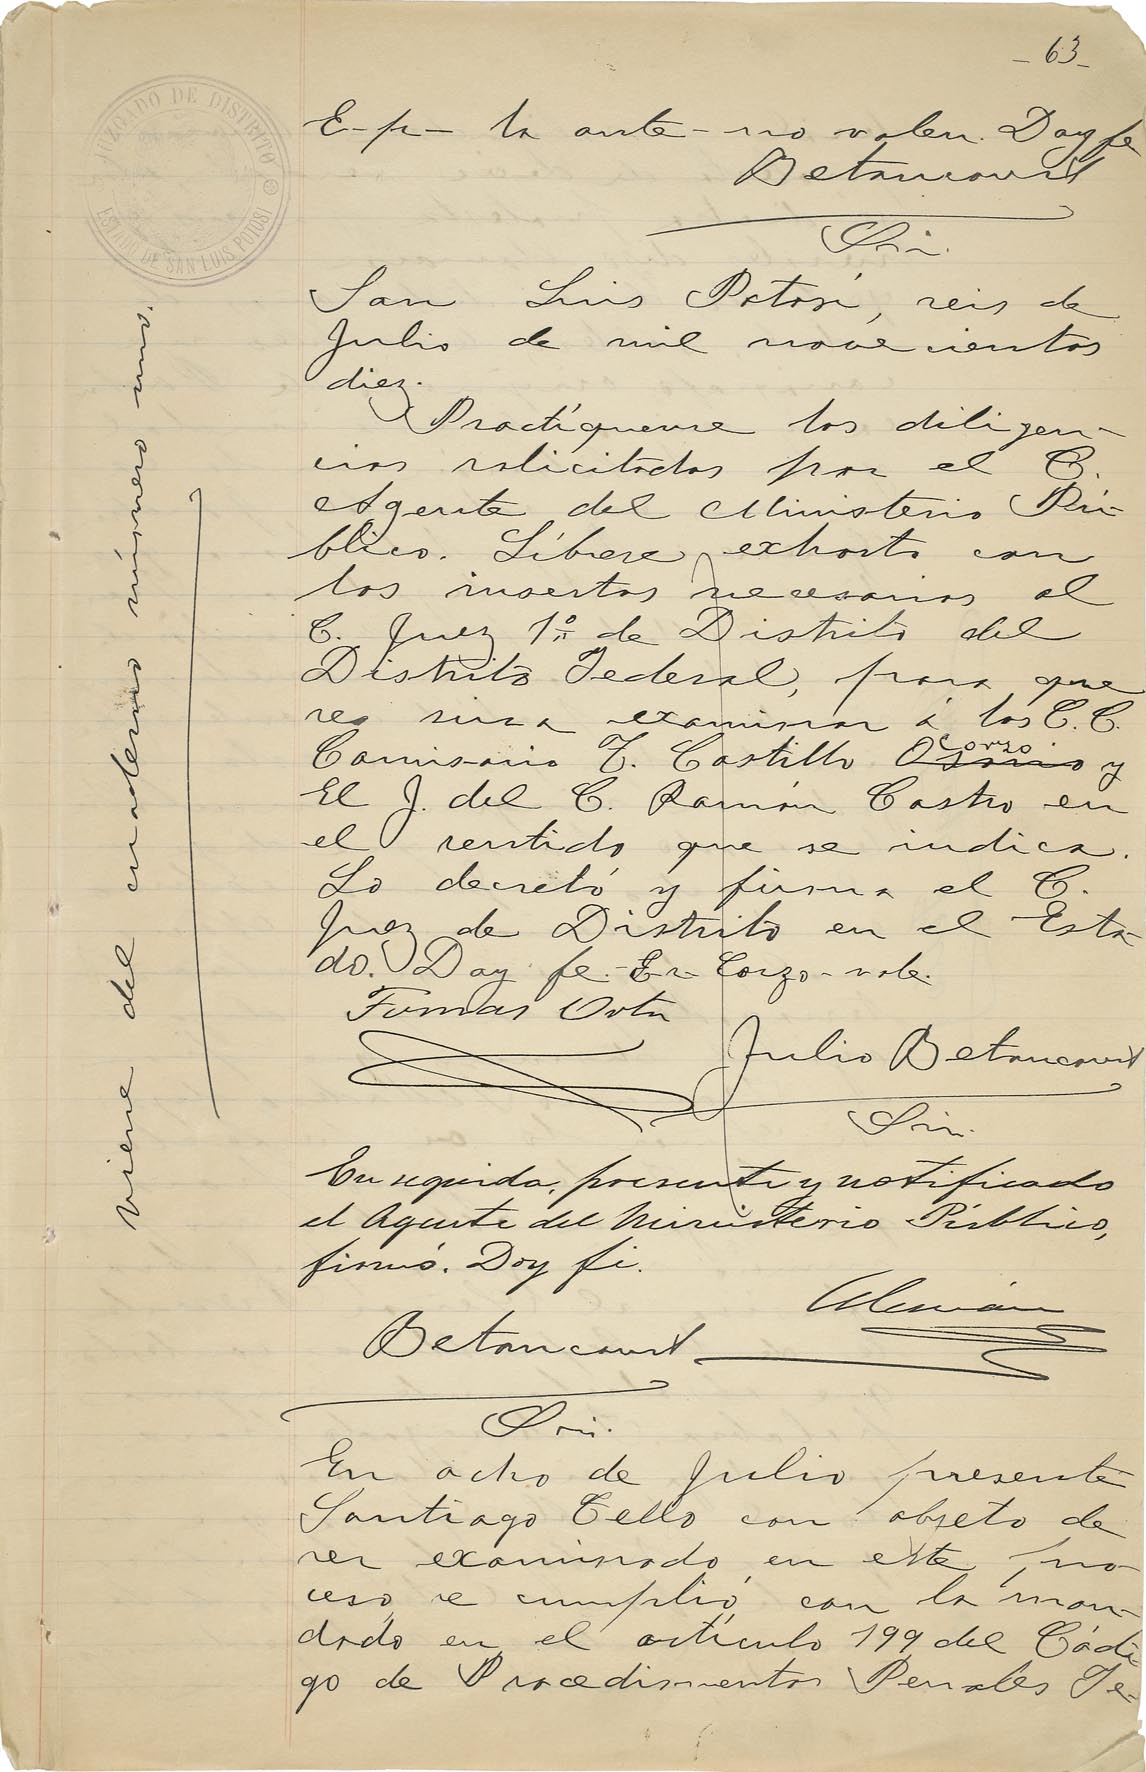 - 63 -
JUZGADO DE DISTRITO
ESTADO DE SAN LUIS POTOSI
E-p- la ante-no valen. Doy fe
Betancourt
Srio.
San Luis Potosí, seis de
Julio de mil novecientos
diez.
Practíquense las diligen-
cias solicitadas por el C.
Agente del Ministerio Pú-
blico. Líbrese exhorto con
los insertos necesarios al
C. Juez 1o. de Distrito del
Distrito Federal, para que
se sirva examinar á los C.C.
Comisario F. Castillo Corzo y
El J. del C. Ramón Castro en
el sentido que se indica.
Lo decretó y firma el C.
Juez de Distrito en el Esta-
do. Doy fe.-Er-Corzo-vale.
Tomas Orta
Julio Betancourt
Srio.
En seguida, presente y notificado
el Agente del Ministerio Público,
firmó. Doy fé.
Alemán
Betancourt
Srio.
En ocho de Julio presente
Santiago Tello con objeto de
ser examinado en este pro-
ceso se cumplió con lo man-
dado en el artículo 199 del Códi-
go de Procedimientos Penales Fe-
viene del cuaderno número uno.